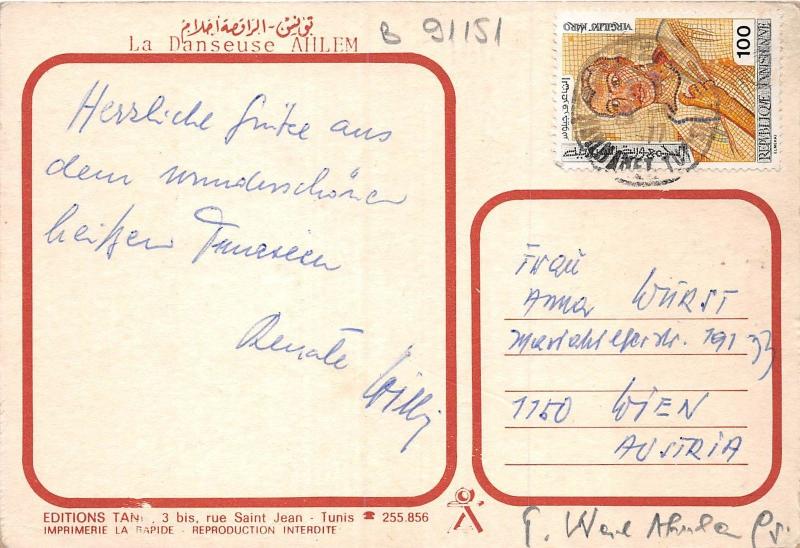 تونس - الراقصة أحلام
La Danseuse AHLEM
B 91151
VIRGILIUS MARO
100
REPUBLIQUE TUNISIENNE
Herzliche Grüße aus
dem wunderschönen
heißen Tunesien
Renate
Willy
Frau
Anna WURST
Mariahilferstr. 191
1150 WIEN
AUSTRIA
EDITIONS 3 bis, rue Saint Jean - Tunis ☎ 255.856
IMPRIMERIE LA RAPIDE - REPRODUCTION INTERDITE